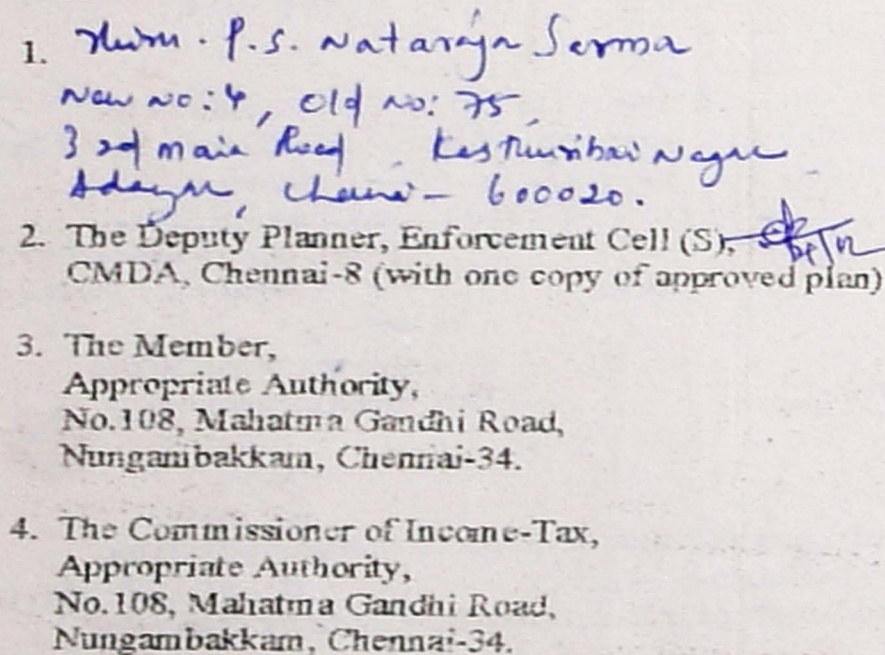 1. Thiru. P.S. Nataraja Sarma
New No: 4, Old No: 75,
3rd Main Road, Kasthuribai Nagar
Adayar, Chennai - 600020.
2. The Deputy Planner, Enforcement Cell (S),
CMDA, Chennai-8 (with one copy of approved plan)
3. The Member,
Appropriate Authority,
No.108, Mahatma Gandhi Road,
Nungambakkam, Chennai-34.
4. The Commissioner of Income-Tax,
Appropriate Authority,
No.108, Mahatma Gandhi Road,
Nungambakkam, Chennai-34.